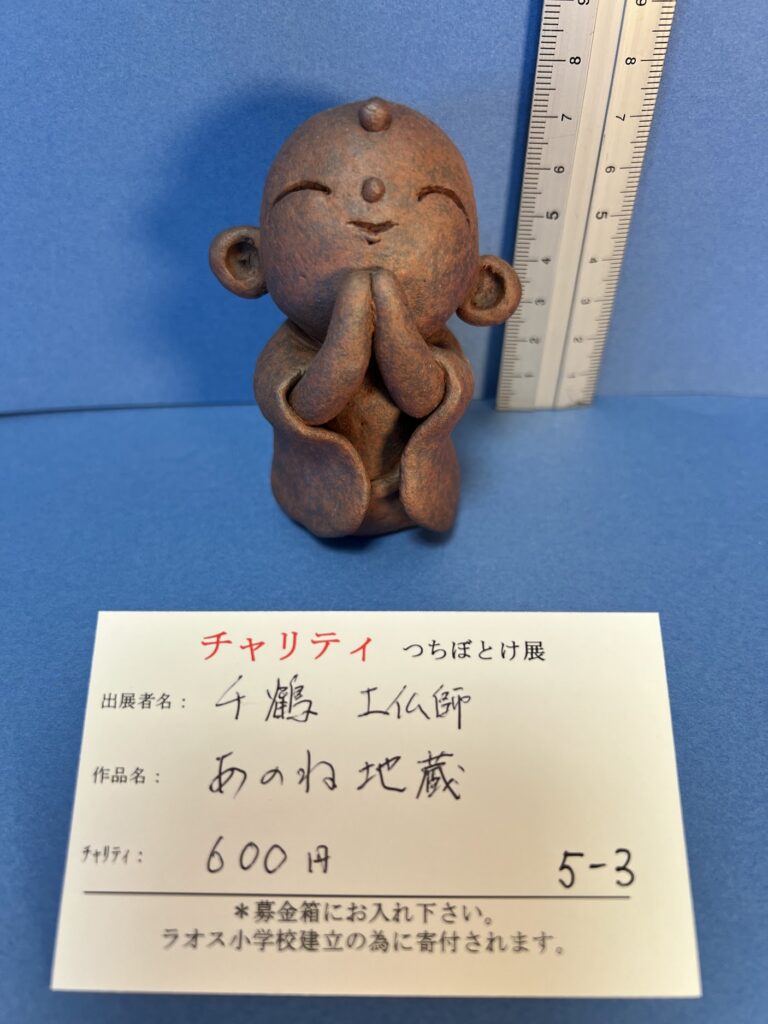 チャリティ つちぼとけ展
出展者名： 千鶴 土仏師
作品名： あのね地蔵
ﾁｬﾘﾃｨ： 600円 5-3
＊募金箱にお入れ下さい。
ラオス小学校建立の為に寄付されます。
9 9
8 8
7 7
6 6
5 5
4 4
3 3
2 2
1 1